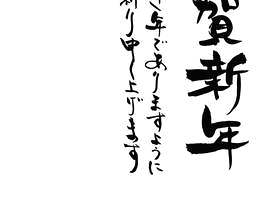 賀新年
年でありますように
祈り申し上げます